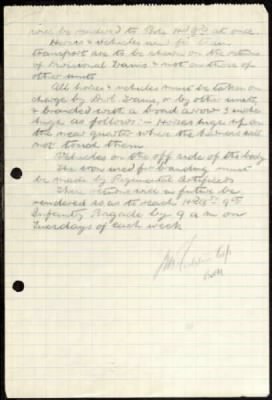 will be rendered to this HdQrs at once.
Horses & vehicles used for
transport are to be shown on the returns
of Divisional Trains & not on those of
other units
All horses & vehicles must be taken on
charge by Divl Trains, or by other units
& branded with a broad arrow 3 inches
high as follows :- Horses high up on
the near quarter where the harness will
not touch them
Vehicles on the off side of the body
The iron used for branding must
be made by Regimental Artificers
These returns will in future be
rendered so as to reach HdQrs 9th
Infantry Brigade by 9 a m on
Tuesdays of each week